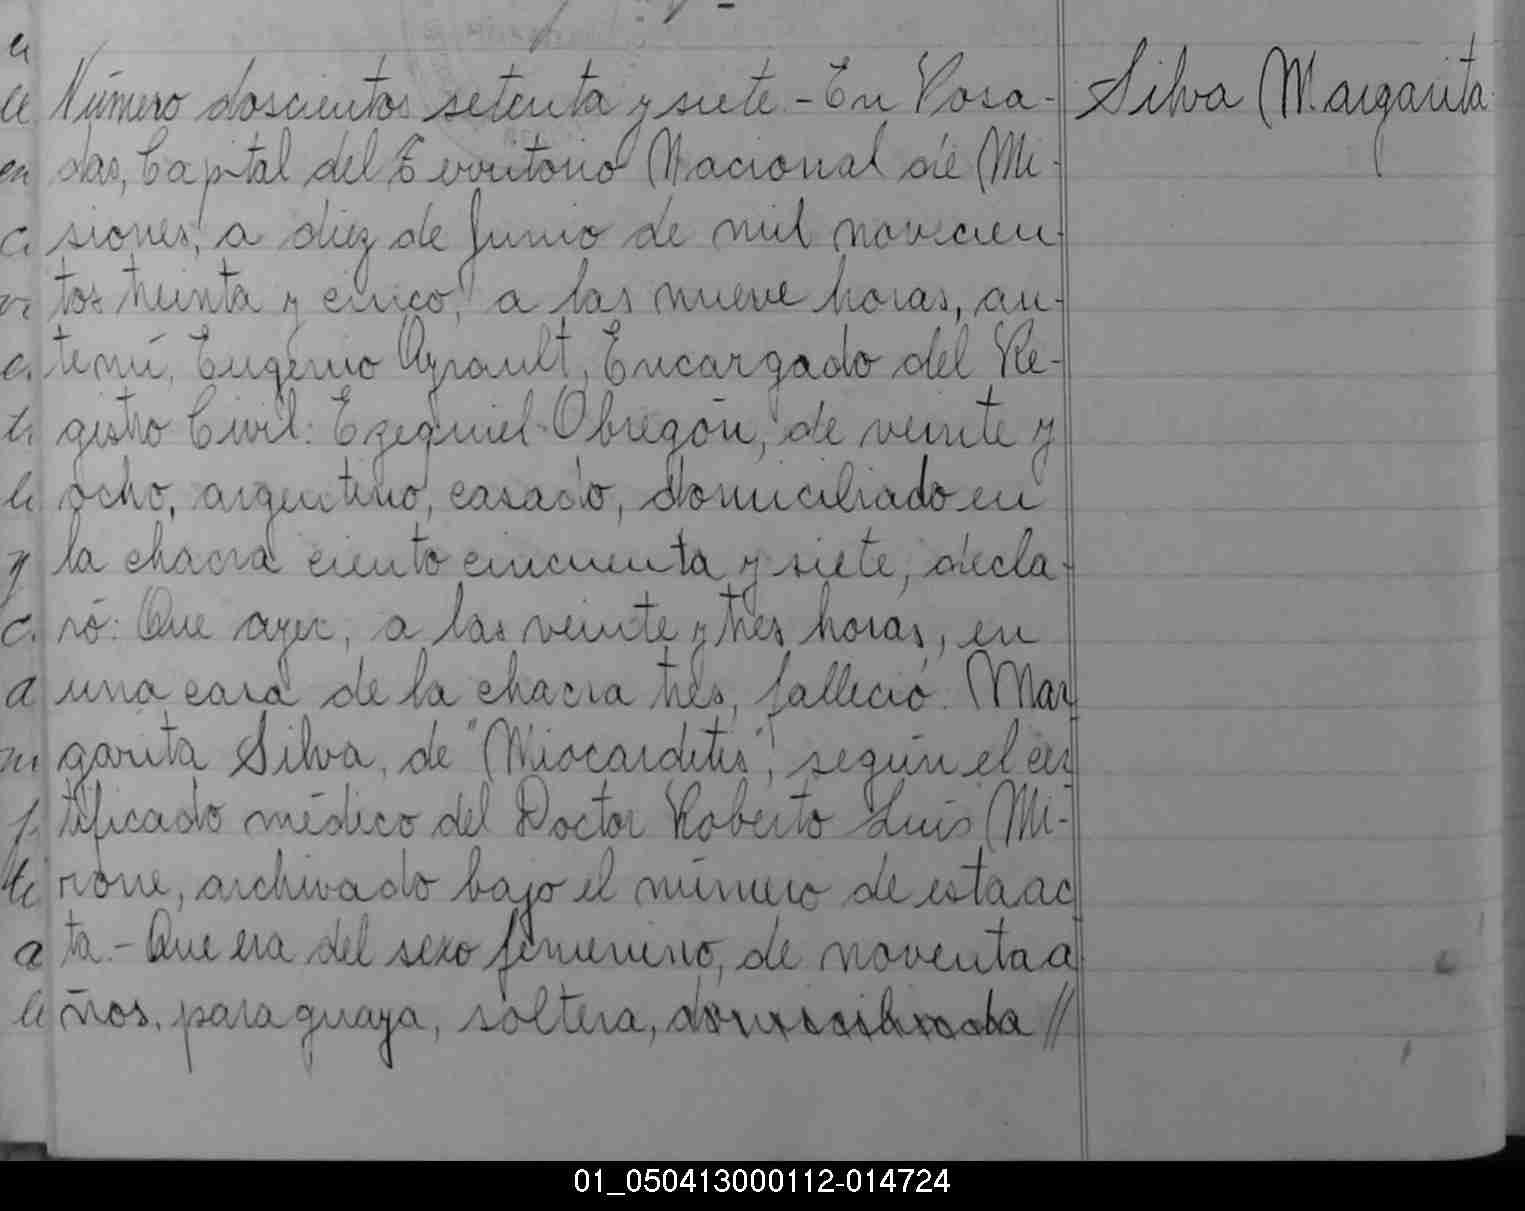 Número doscientos setenta y siete - En Posa-
Silva Margarita
das, Capital del Territorio Nacional de Mi-
siones, a diez de Junio de mil novecien-
tos treinta y cinco, a las nueve horas, an-
te mí, Eugenio Ayrault, Encargado del Re-
gistro Civil: Ezequiel Obregón, de veinte y
ocho, argentino, casado, domiciliado en
la chacra ciento cincuenta y siete, decla-
ró: Que ayer, a las veinte y tres horas, en
una casa de la chacra tres, falleció: Mar
garita Silva, de "Miocarditis", según el cer
tificado médico del Doctor Roberto Luis Mi-
rone, archivado bajo el número de esta ac
ta.- Que era del sexo femenino, de noventa a
ños, paraguaya, soltera, domiciliada //
01_050413000112-014724